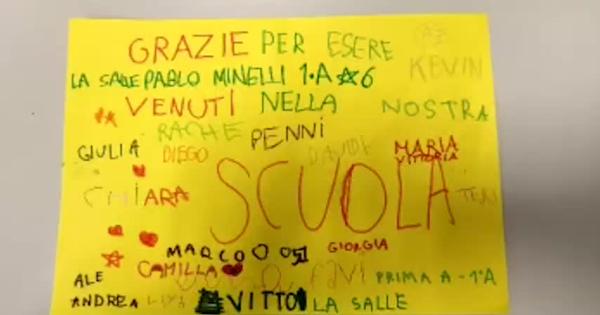 GRAZIE PER ESERE
KEVIN
LA SALLE PABLO MINELLI 1·A 6
VENUTI NELLA NOSTRA
RACHE PENNI
GIULIA DIEGO DAVIDE MARIA
VITTORIA
CHIARA SCUOLA
MARCO GIORGIA
CAMILLA
ALE PRIMA A - 1ªA
ANDREA VITTO LA SALLE